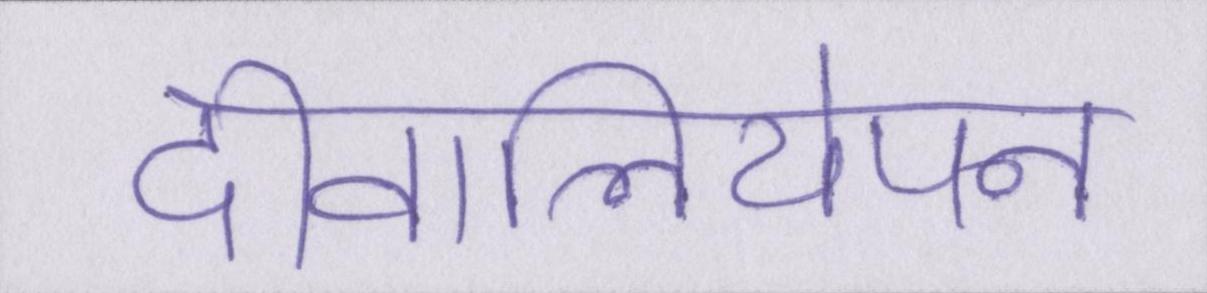 दीवालियेपन